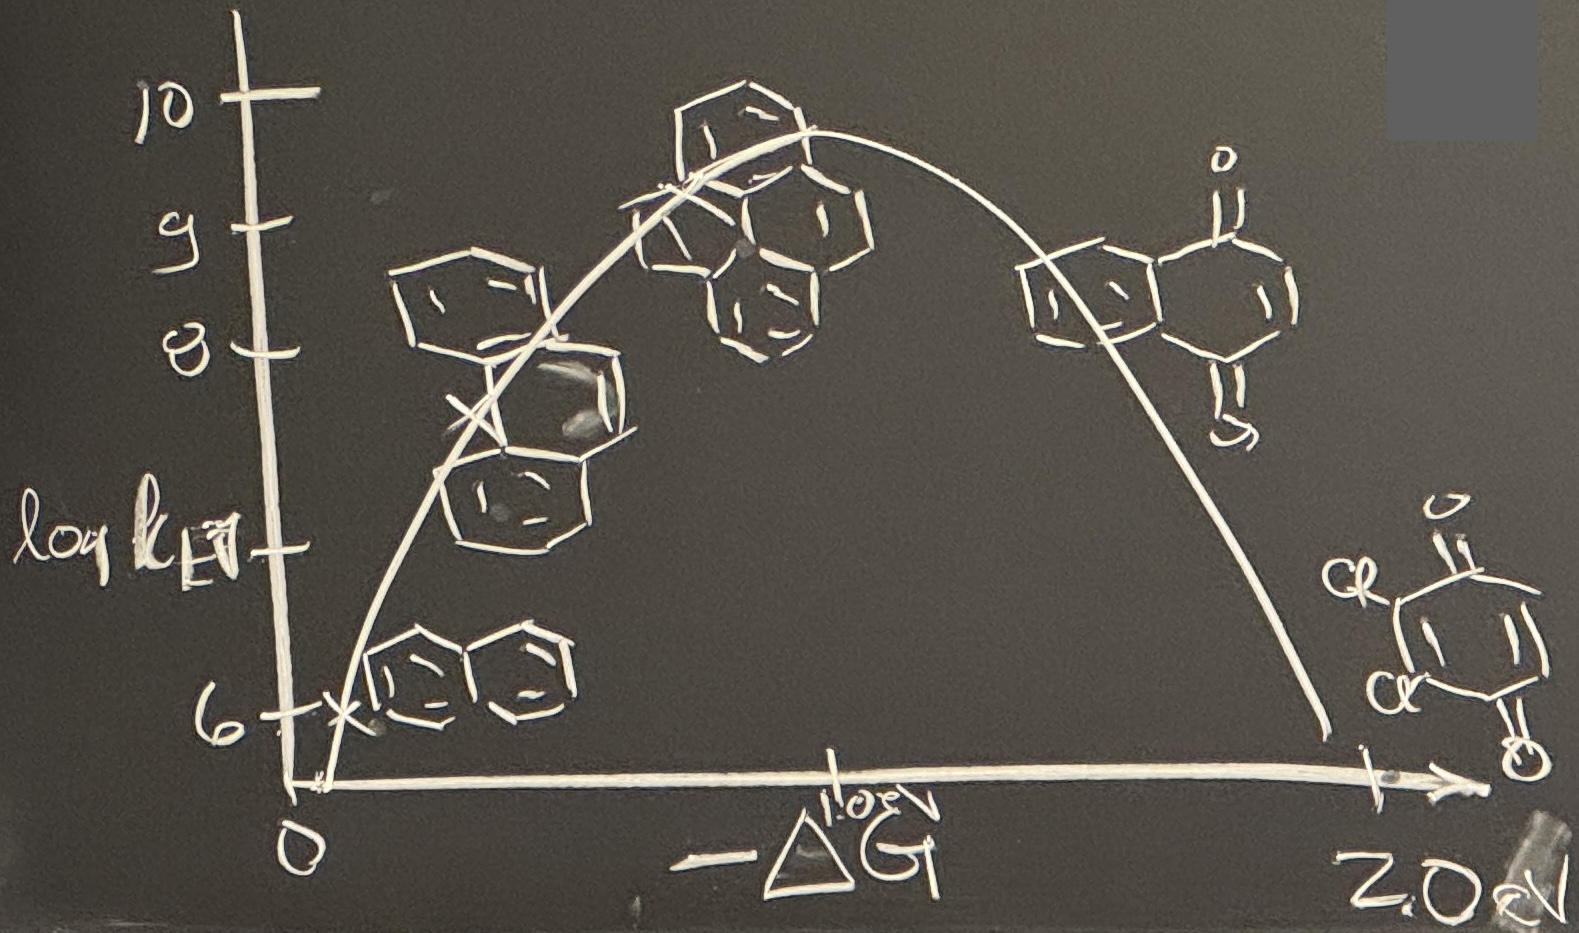 10
9
8
log k ET
6
0
1.0 eV
-ΔG
2.0 eV
O
O
O
Cl
Cl
O